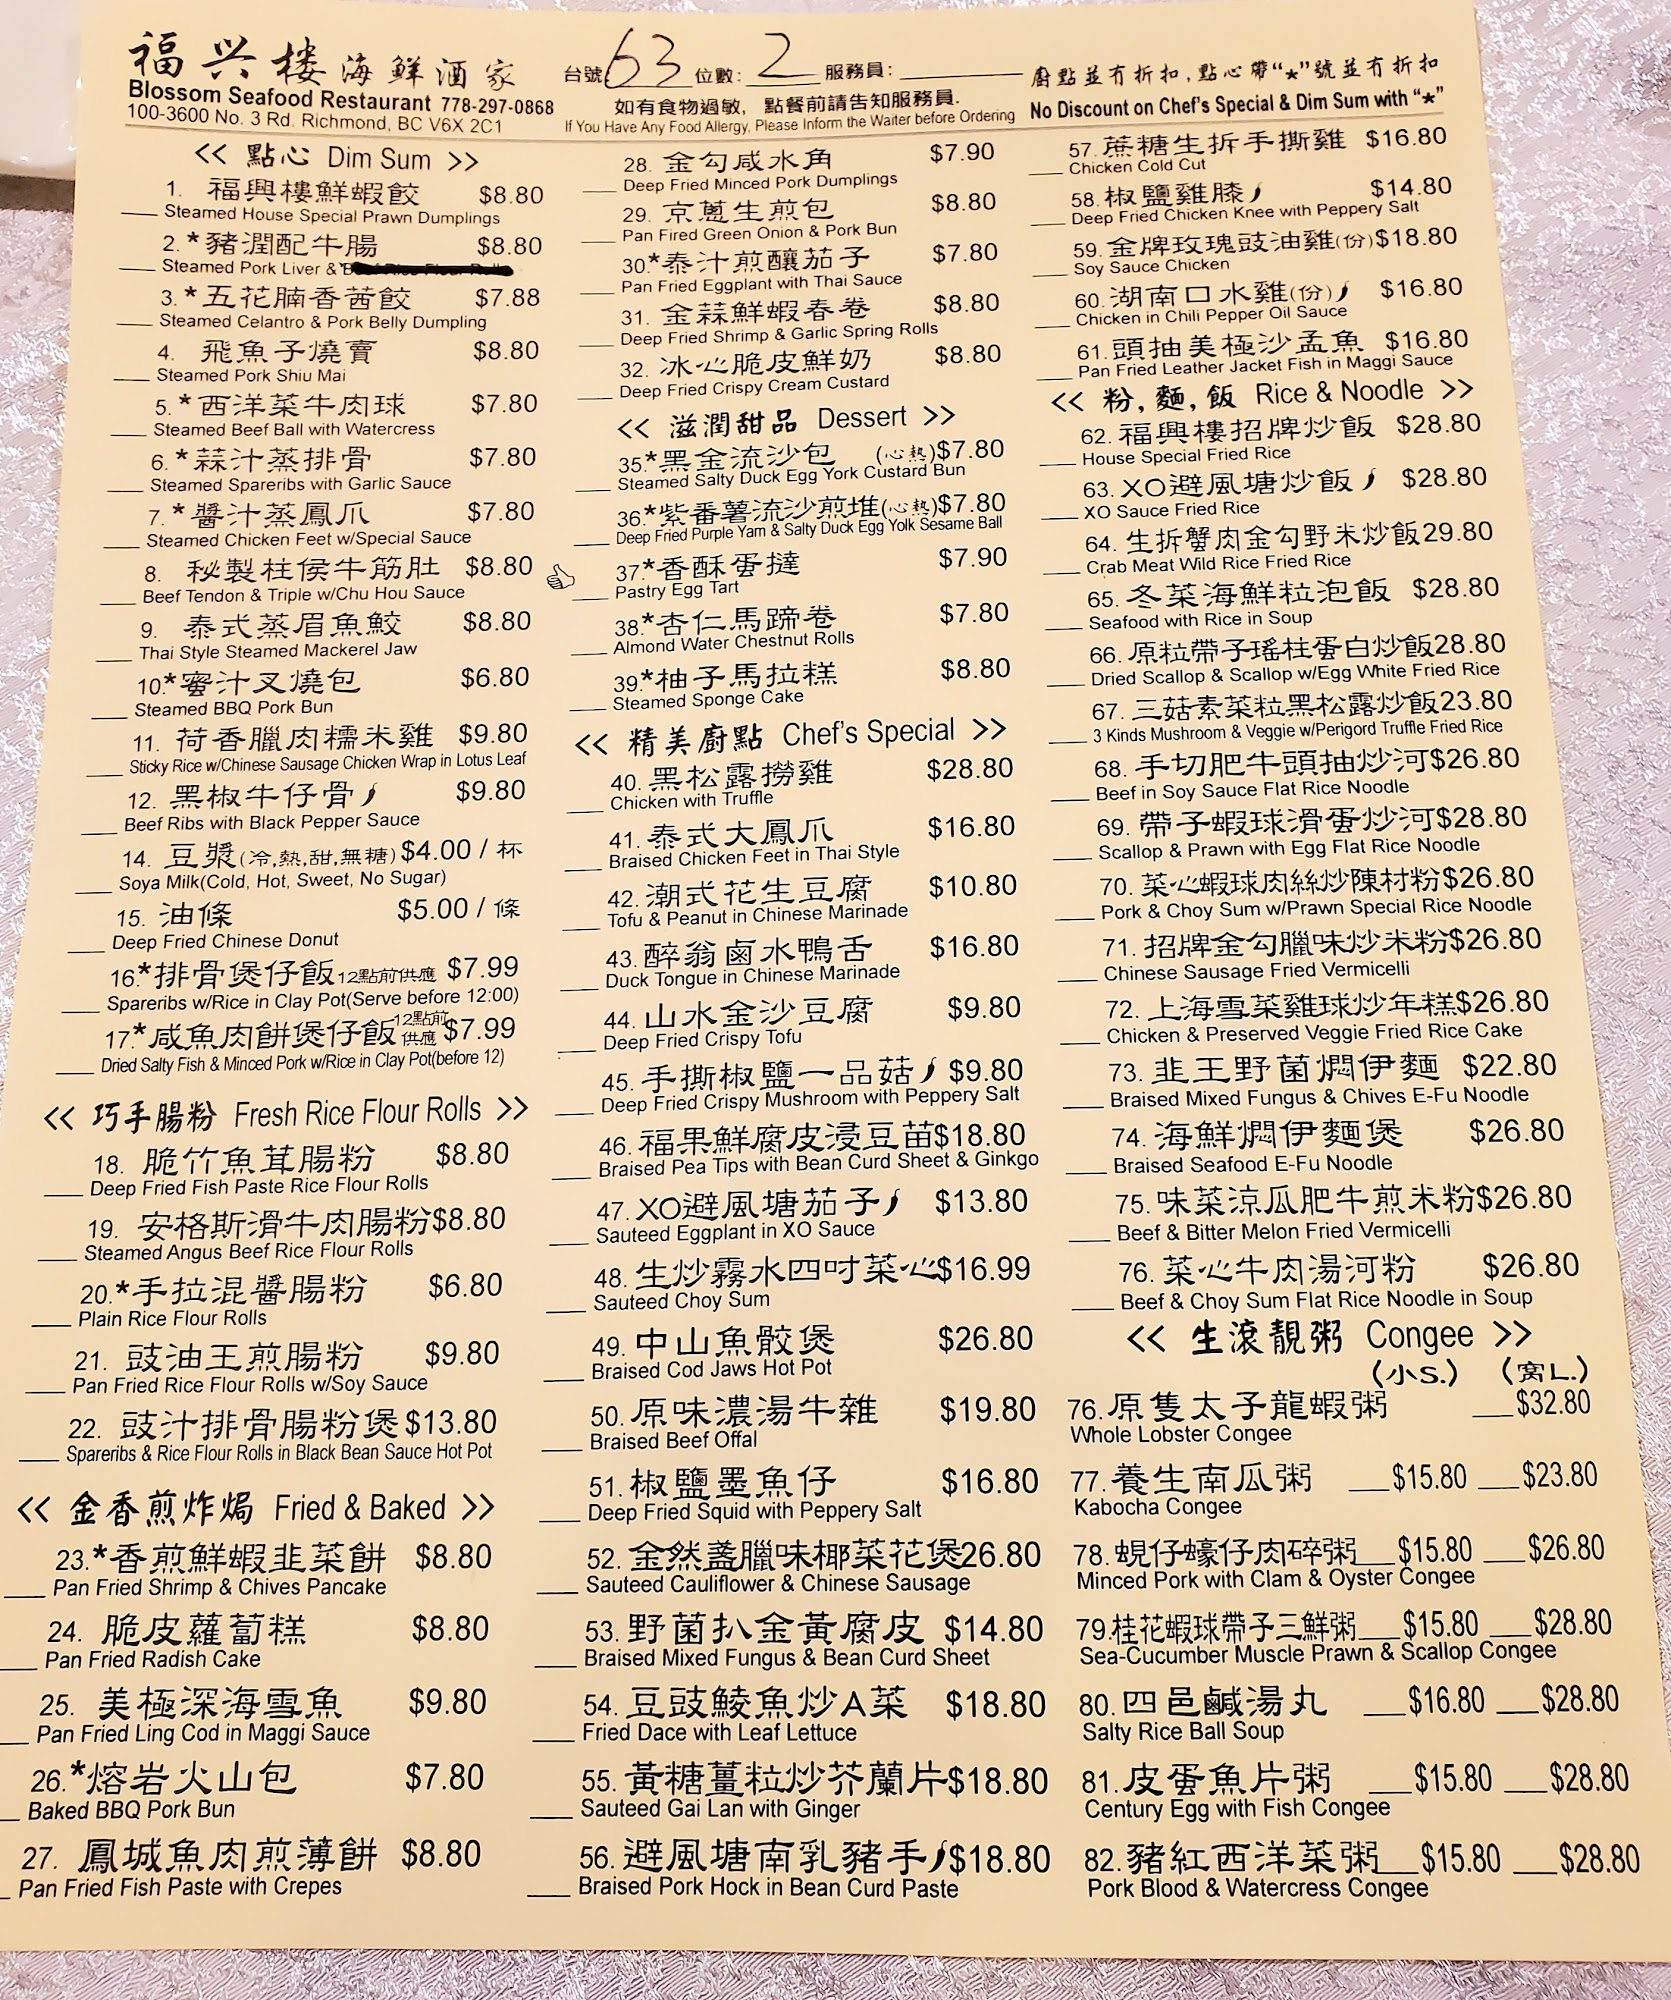 福兴楼海鲜酒家
Blossom Seafood Restaurant 778-297-0868
100-3600 No. 3 Rd. Richmond, BC V6X 2C1
台號: 63 位數: 2 服務員:
如有食物過敏, 點餐前請告知服務員.
If You Have Any Food Allergy, Please Inform the Waiter before Ordering
廚點並冇折扣,點心帶“*”號並冇折扣
No Discount on Chef's Special & Dim Sum with “*”
<< 點心 Dim Sum >>
1. 福興樓鮮蝦餃 $8.80
Steamed House Special Prawn Dumplings
2.*豬潤配牛腸 $8.80
Steamed Pork Liver &
3.*五花腩香茜餃 $7.88
Steamed Celantro & Pork Belly Dumpling
4. 飛魚子燒賣 $8.80
Steamed Pork Shiu Mai
5.*西洋菜牛肉球 $7.80
Steamed Beef Ball with Watercress
6.*蒜汁蒸排骨 $7.80
Steamed Spareribs with Garlic Sauce
7.*醬汁蒸鳳爪 $7.80
Steamed Chicken Feet w/Special Sauce
8. 秘製柱侯牛筋肚 $8.80
Beef Tendon & Triple w/Chu Hou Sauce
9. 泰式蒸眉魚鮫 $8.80
Thai Style Steamed Mackerel Jaw
10.*蜜汁叉燒包 $6.80
Steamed BBQ Pork Bun
11. 荷香臘肉糯米雞 $9.80
Sticky Rice w/Chinese Sausage Chicken Wrap in Lotus Leaf
12. 黑椒牛仔骨 $9.80
Beef Ribs with Black Pepper Sauce
14. 豆漿(冷,熱,甜,無糖) $4.00 / 杯
Soya Milk(Cold, Hot, Sweet, No Sugar)
15. 油條 $5.00 / 條
Deep Fried Chinese Donut
16.*排骨煲仔飯12點前供應 $7.99
Spareribs w/Rice in Clay Pot(Serve before 12:00)
17.*咸魚肉餅煲仔飯12點前供應 $7.99
Dried Salty Fish & Minced Pork w/Rice in Clay Pot(before 12)
<< 巧手腸粉 Fresh Rice Flour Rolls >>
18. 脆竹魚茸腸粉 $8.80
Deep Fried Fish Paste Rice Flour Rolls
19. 安格斯滑牛肉腸粉$8.80
Steamed Angus Beef Rice Flour Rolls
20.*手拉混醬腸粉 $6.80
Plain Rice Flour Rolls
21. 豉油王煎腸粉 $9.80
Pan Fried Rice Flour Rolls w/Soy Sauce
22. 豉汁排骨腸粉煲$13.80
Spareribs & Rice Flour Rolls in Black Bean Sauce Hot Pot
<< 金香煎炸焗 Fried & Baked >>
23.*香煎鮮蝦韭菜餅 $8.80
Pan Fried Shrimp & Chives Pancake
24. 脆皮蘿蔔糕 $8.80
Pan Fried Radish Cake
25. 美極深海雪魚 $9.80
Pan Fried Ling Cod in Maggi Sauce
26.*熔岩火山包 $7.80
Baked BBQ Pork Bun
27. 鳳城魚肉煎薄餅 $8.80
Pan Fried Fish Paste with Crepes
28. 金勾咸水角 $7.90
Deep Fried Minced Pork Dumplings
29. 京蔥生煎包 $8.80
Pan Fired Green Onion & Pork Bun
30.*泰汁煎釀茄子 $7.80
Pan Fried Eggplant with Thai Sauce
31. 金蒜鮮蝦春卷 $8.80
Deep Fried Shrimp & Garlic Spring Rolls
32. 冰心脆皮鮮奶 $8.80
Deep Fried Crispy Cream Custard
<< 滋潤甜品 Dessert >>
35.*黑金流沙包 (心熱)$7.80
Steamed Salty Duck Egg York Custard Bun
36.*紫番薯流沙煎堆(心熱)$7.80
Deep Fried Purple Yam & Salty Duck Egg Yolk Sesame Ball
37.*香酥蛋撻 $7.90
Pastry Egg Tart
38.*杏仁馬蹄卷 $7.80
Almond Water Chestnut Rolls
39.*柚子馬拉糕 $8.80
Steamed Sponge Cake
<< 精美廚點 Chef's Special >>
40. 黑松露撈雞 $28.80
Chicken with Truffle
41. 泰式大鳳爪 $16.80
Braised Chicken Feet in Thai Style
42. 潮式花生豆腐 $10.80
Tofu & Peanut in Chinese Marinade
43. 醉翁鹵水鴨舌 $16.80
Duck Tongue in Chinese Marinade
44. 山水金沙豆腐 $9.80
Deep Fried Crispy Tofu
45. 手撕椒鹽一品菇 $9.80
Deep Fried Crispy Mushroom with Peppery Salt
46. 福果鮮腐皮浸豆苗$18.80
Braised Pea Tips with Bean Curd Sheet & Ginkgo
47. XO避風塘茄子 $13.80
Sauteed Eggplant in XO Sauce
48. 生炒霧水四吋菜心$16.99
Sauteed Choy Sum
49. 中山魚骹煲 $26.80
Braised Cod Jaws Hot Pot
50. 原味濃湯牛雜 $19.80
Braised Beef Offal
51. 椒鹽墨魚仔 $16.80
Deep Fried Squid with Peppery Salt
52. 金然盞臘味椰菜花煲26.80
Sauteed Cauliflower & Chinese Sausage
53. 野菌扒金黃腐皮 $14.80
Braised Mixed Fungus & Bean Curd Sheet
54. 豆豉鯪魚炒A菜 $18.80
Fried Dace with Leaf Lettuce
55. 黃糖薑粒炒芥蘭片$18.80
Sauteed Gai Lan with Ginger
56. 避風塘南乳豬手$18.80
Braised Pork Hock in Bean Curd Paste
57. 蔗糖生折手撕雞 $16.80
Chicken Cold Cut
58. 椒鹽雞膝 $14.80
Deep Fried Chicken Knee with Peppery Salt
59. 金牌玫瑰豉油雞(份)$18.80
Soy Sauce Chicken
60. 湖南口水雞(份) $16.80
Chicken in Chili Pepper Oil Sauce
61. 頭抽美極沙孟魚 $16.80
Pan Fried Leather Jacket Fish in Maggi Sauce
<< 粉, 麵, 飯 Rice & Noodle >>
62. 福興樓招牌炒飯 $28.80
House Special Fried Rice
63. XO避風塘炒飯 $28.80
XO Sauce Fried Rice
64. 生拆蟹肉金勾野米炒飯29.80
Crab Meat Wild Rice Fried Rice
65. 冬菜海鮮粒泡飯 $28.80
Seafood with Rice in Soup
66. 原粒帶子瑤柱蛋白炒飯28.80
Dried Scallop & Scallop w/Egg White Fried Rice
67. 三菇素菜粒黑松露炒飯23.80
3 Kinds Mushroom & Veggie w/Perigord Truffle Fried Rice
68. 手切肥牛頭抽炒河$26.80
Beef in Soy Sauce Flat Rice Noodle
69. 帶子蝦球滑蛋炒河$28.80
Scallop & Prawn with Egg Flat Rice Noodle
70. 菜心蝦球肉絲炒陳村粉$26.80
Pork & Choy Sum w/Prawn Special Rice Noodle
71. 招牌金勾臘味炒米粉$26.80
Chinese Sausage Fried Vermicelli
72. 上海雪菜雞球炒年糕$26.80
Chicken & Preserved Veggie Fried Rice Cake
73. 韭王野菌燜伊麵 $22.80
Braised Mixed Fungus & Chives E-Fu Noodle
74. 海鮮燜伊麵煲 $26.80
Braised Seafood E-Fu Noodle
75. 味菜涼瓜肥牛煎米粉$26.80
Beef & Bitter Melon Fried Vermicelli
76. 菜心牛肉湯河粉 $26.80
Beef & Choy Sum Flat Rice Noodle in Soup
<< 生滾靚粥 Congee >>
(小S.) (窩L.)
76. 原隻太子龍蝦粥 $32.80
Whole Lobster Congee
77. 養生南瓜粥 $15.80 $23.80
Kabocha Congee
78. 蜆仔蠔仔肉碎粥 $15.80 $26.80
Minced Pork with Clam & Oyster Congee
79. 桂花蝦球帶子三鮮粥 $15.80 $28.80
Sea-Cucumber Muscle Prawn & Scallop Congee
80. 四邑鹹湯丸 $16.80 $28.80
Salty Rice Ball Soup
81. 皮蛋魚片粥 $15.80 $28.80
Century Egg with Fish Congee
82. 豬紅西洋菜粥 $15.80 $28.80
Pork Blood & Watercress Congee